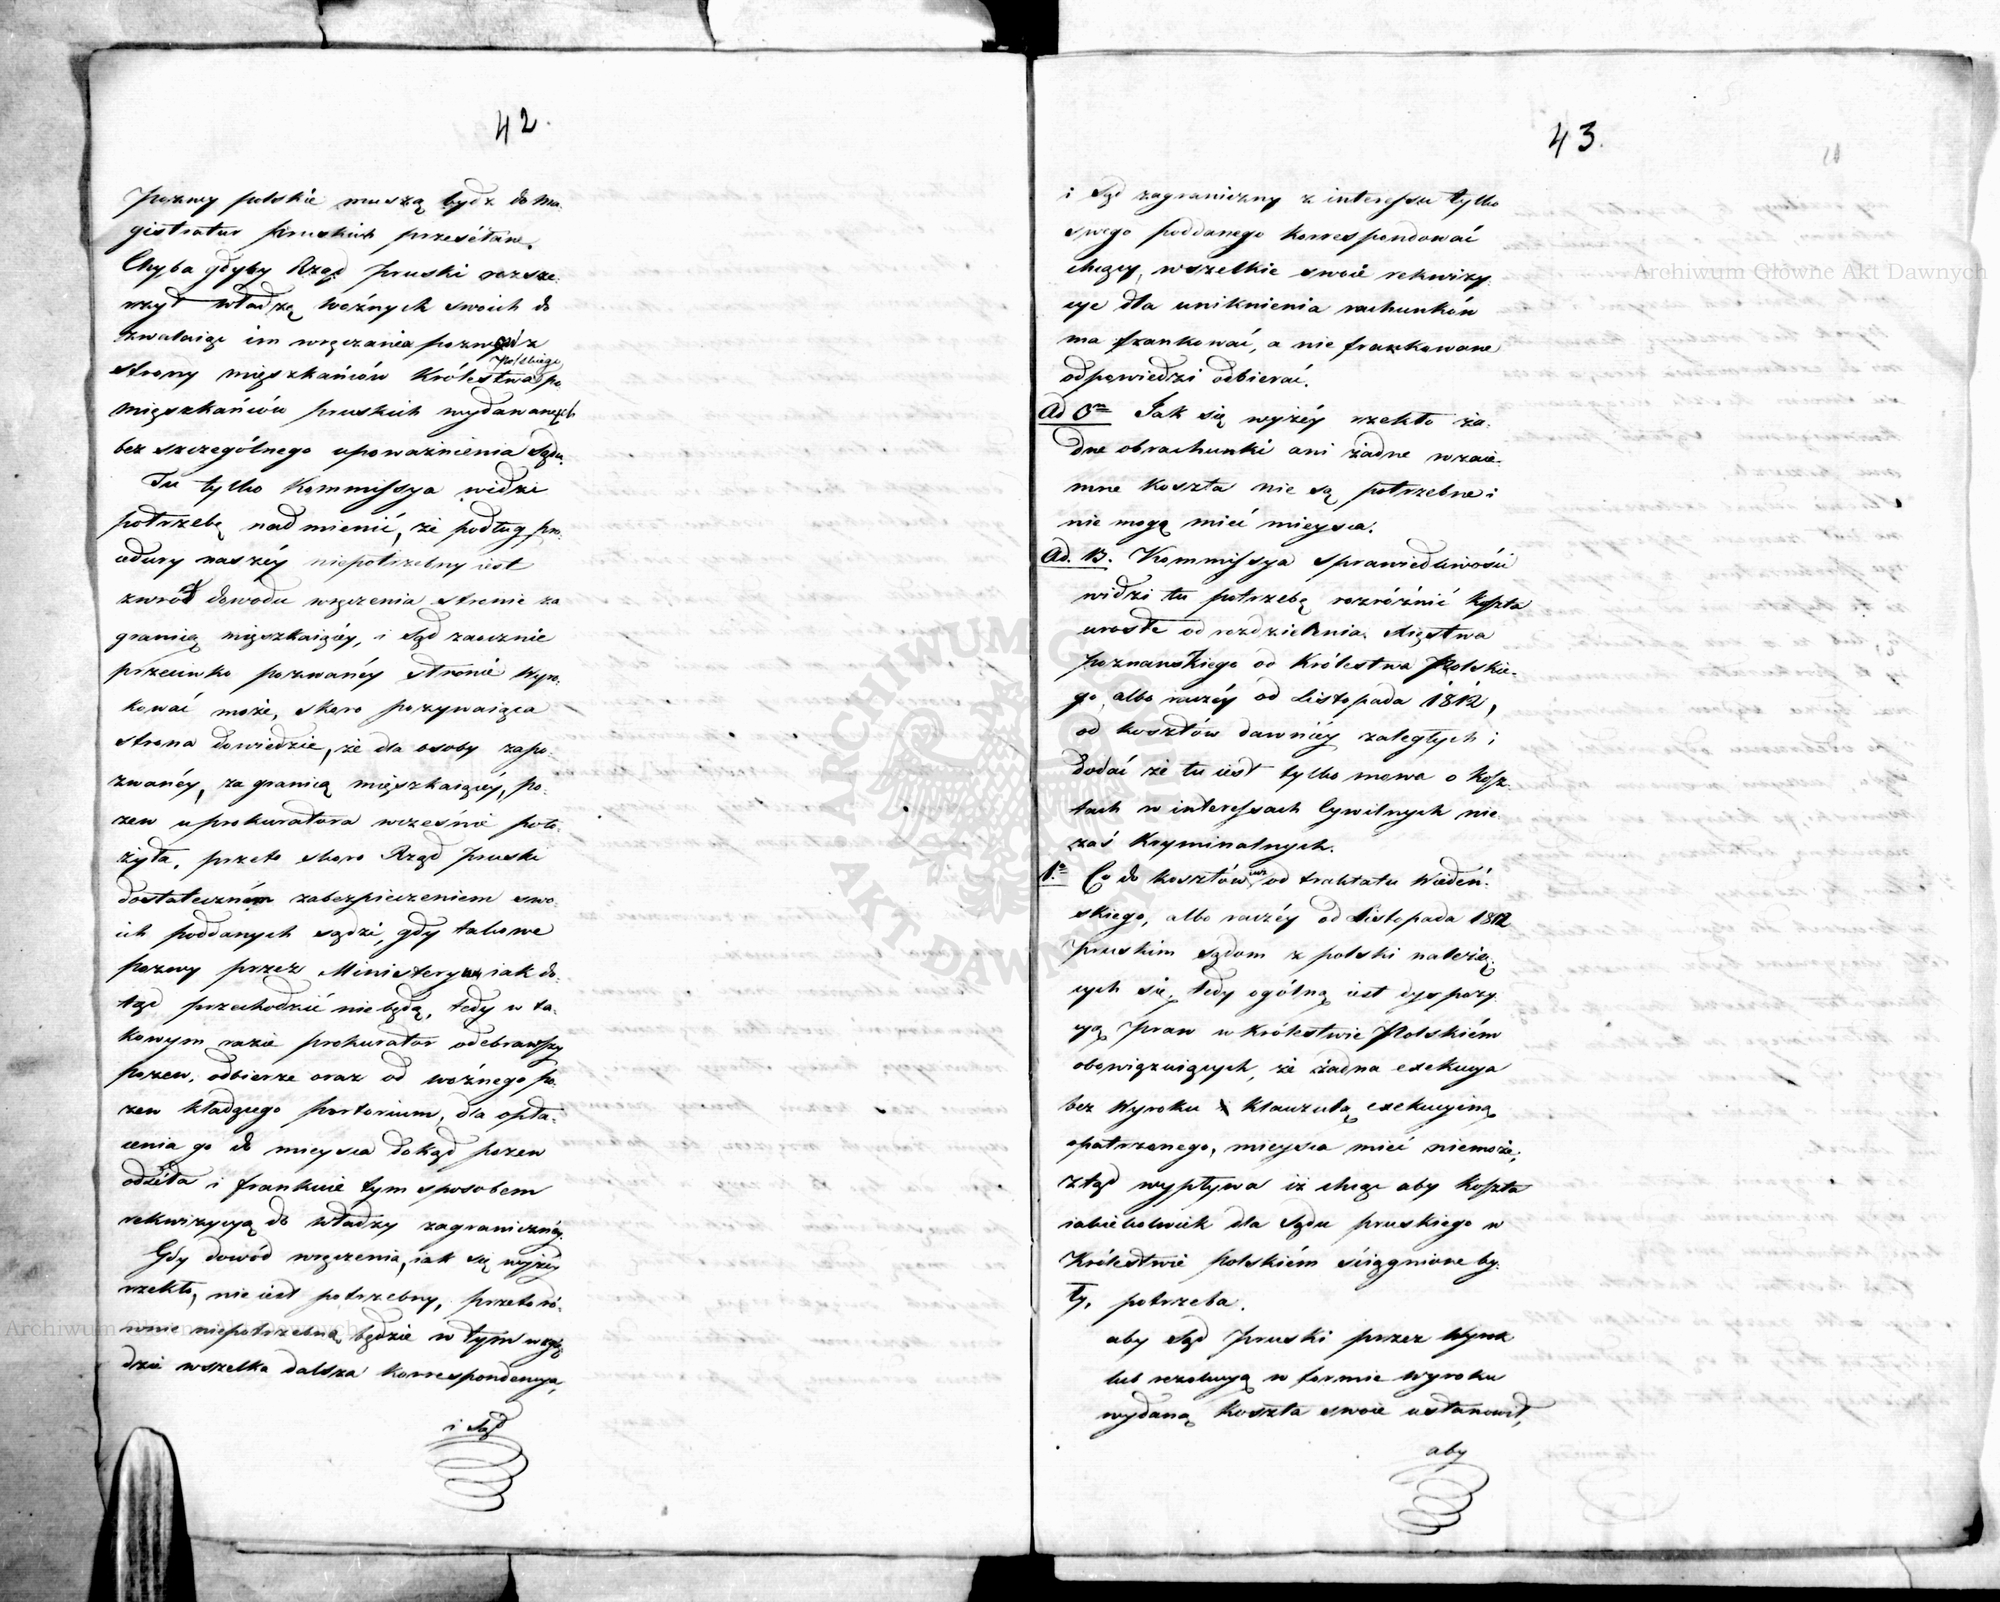 42.
Pozwy polskie muszą bydź do Ma-
gistratur pruskich przesełane.
Chyba gdyby Rząd pruski rozsze-
rzył władzę woźnych swoich do
zwalaiąc im wręczania pozwów z
strony mięszkańców Królestwa Polskiego po
mięszkańców pruskich wydawanych
bez szczególnego upoważnienia Sądu.
Tu tylko Kommissya widzi
potrzebę nadmienić, że podług pro-
cedury naszéy niepotrzebny iest
zwrót dowodu wręczenia stronie za
granicą mięszkaiącéy, i Sąd zaocznie
przeciwko pozwanéy stronie wyro-
kować może, skoro pozywaiąca
strona dowiedzie, że dla osoby zapo-
zwanéy, za granicą mięszkaiącéy, po-
zew u prokuratora wcześnie poło-
żyła, przeto skoro Rząd pruski
dostateczném zabezpieczeniem swo-
ich poddanych sądzi, gdy takowe
pozwy przez Ministeryum iak do-
tąd przechodzić nie będą, tedy w ta-
kowym razie prokurator odebrawszy
pozew, odbierze oraz od woźnego po-
zew kładącego portorium, dla opła-
cenia go do mieysca dokąd pozew
odséła i frankuie tym sposobem
rekwizycyą do władzy zagranicznéy.
Gdy dowód wręczenia, iak się wyżéy
rzekło, nie iest potrzebny, przeto ró-
wnie niepotrzebną będzie w tym wzglę
dzie wszelka dalsza korrespondencya,
i Sąd
43.
i Sąd zagraniczny z interessu tylko
swego poddanego korrespondować
chcący, wszelkie swoie rekwizy-
cye dla uniknienia rachunków
ma frankować, a nie frankowane
odpowiedzi odbierać.
Jak się wyżéy rzekło ża-
dne obrachunki ani żadne wzaie-
mne koszta nie są potrzebne i
nie mogą mieć mieysca.
Ad. B. Kommissya Sprawiedliwości
widzi tu potrzebę rozróżnić koszta
urosłe od rozdzielenia Xięstwa
poznańskiego od Królestwa Polskie-
go, albo raczéy od Listopada 1812,
od kosztów dawniéy zaległych i
dodać że tu iest tylko mowa o kosz-
tach w interessach Cywilnych nie-
zaś Kryminalnych.
1.o Co do kosztów od traktatu Wiedeń-
skiego, albo raczéy od Listopada 1812
pruskim sądom z polski należą-
cych się, tedy ogólną iest dyspozy-
cyą praw w Królestwie Polskiém
obowiązuiących, że żadna exekucya
bez wyroku klauzulą exekucyiną
opatrzonego, mieysca mieć niemoże,
ztąd wypływa iż chcąc aby koszta
iakiekolwiek dla Sądu pruskiego w
Królestwie polskiém ściągnione by-
ły, potrzeba.
aby Sąd pruski przez wyrok
lub rezolucyą w formie wyroku
wydaną koszta swoie ustanowił,
aby
Archiwum Główne Akt Dawnych
Archiwum Główne Akt Dawnych
ARCHIWUM GŁÓWNE AKT DAWNYCH